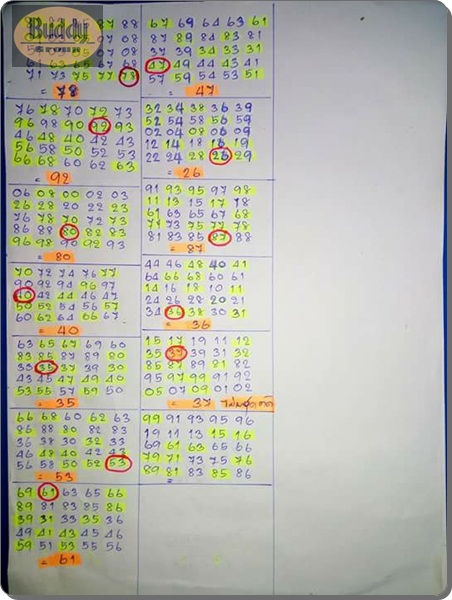 Buddy
78 88
07 08
63 65 67 68
71 73 75 77 78
= 78
67 69 64 63 61
87 89 84 83 81
37 39 34 33 31
47 49 44 43 41
57 59 54 53 51
= 47
76 78 70 72 73
96 98 90 92 93
46 48 40 42 43
56 58 50 52 53
66 68 60 62 63
= 92
32 34 38 36 39
52 54 58 56 59
02 04 08 06 09
12 14 18 16 19
22 24 28 26 29
= 26
06 08 00 02 03
26 28 20 22 23
76 78 70 72 73
86 88 80 82 83
96 98 90 92 93
= 80
91 93 95 97 98
11 13 15 17 18
61 63 65 67 68
71 73 75 77 78
81 83 85 87 88
= 87
70 72 74 76 77
90 92 94 96 97
40 42 44 46 47
50 52 54 56 57
60 62 64 66 67
= 40
44 46 48 40 41
64 66 68 60 61
14 16 18 10 11
24 26 28 20 21
34 36 38 30 31
= 36
63 65 67 69 60
83 85 87 89 80
33 35 37 39 30
43 45 47 49 40
53 55 57 59 50
= 35
15 17 19 11 12
35 37 39 31 32
85 87 89 81 82
95 97 99 91 92
05 07 09 01 02
= 37
66 68 60 62 63
86 88 80 82 83
36 38 30 32 33
46 48 40 42 43
56 58 50 52 53
= 53
99 91 93 95 96
19 11 13 15 16
69 61 63 65 66
79 71 73 75 76
89 81 83 85 86
=
69 61 63 65 66
89 81 83 85 86
39 31 33 35 36
49 41 43 45 46
59 51 53 55 56
= 61